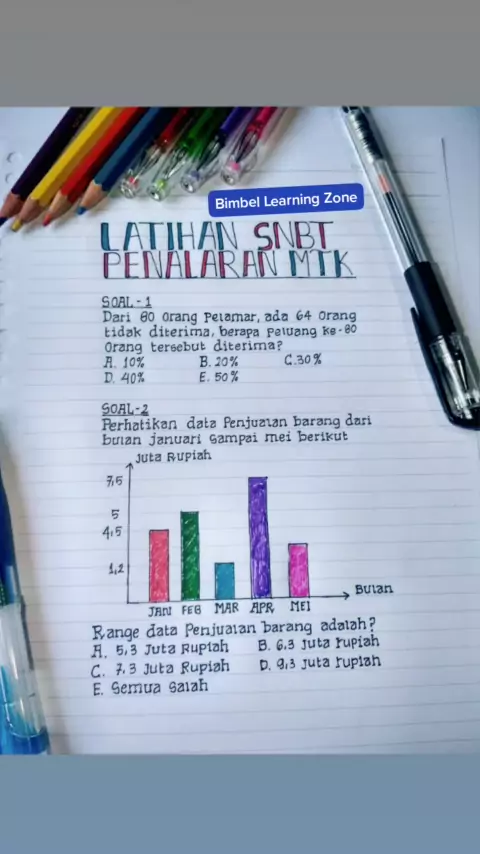 Bimbel Learning Zone
LATIHAN SNBT
PENALARAN MTK
SOAL - 1
Dari 80 orang Pelamar, ada 64 orang
tidak diterima, berapa peluang ke-80
orang tersebut diterima?
A. 10% B. 20% C. 30%
D. 40% E. 50%
SOAL-2
Perhatikan data Penjualan barang dari
bulan januari sampai mei berikut
Juta Rupiah
7,5
5
4,5
1,2
Bulan
JAN FEB MAR APR MEI
Range data Penjualan barang adalah?
A. 5,3 Juta Rupiah B. 6.3 Juta rupiah
C. 7,3 Juta Rupiah D. 9,3 Juta rupiah
E. Semua Salah